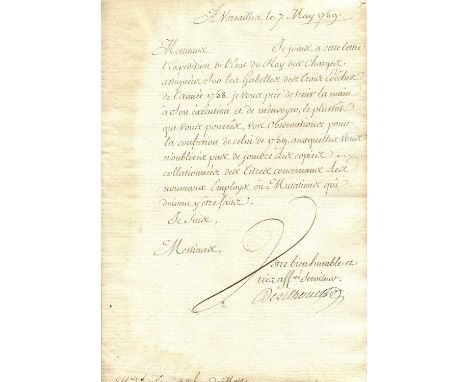 A Versailles le 7. May 1759.
Messieurs Je joins a cette lettre
l'Expedition de l'Etat du Roy des Charges
assignées Sur les Gabelles des Trois Evéchez
de l'année 1758. je vous prie de tenir la main
a Son execution et de m'envoyer, le plustost
que vous pourrés, vos Observations pour
la confection de celui de 1759. auxquelles Vous
n'oublirés pas de joindre des copies
collationnées des titres concernans les
nouveaux Employs ou Mutations qui
doivent y etre faites.
Je Suis,
Messieurs,
Votre bien humble et
tres aff.né Serviteur.